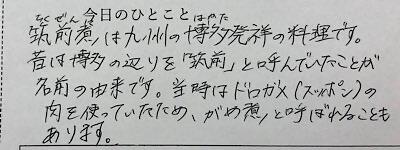 ちくぜん 今日のひとこと はかた
筑前煮は九州の博多発祥の料理です。
昔は博多の辺りを「筑前」と呼んでいたことが
名前の由来です。当時はドロガメ(スッポン)の
肉を使っていたため、がめ煮と呼ばれることも
あります。